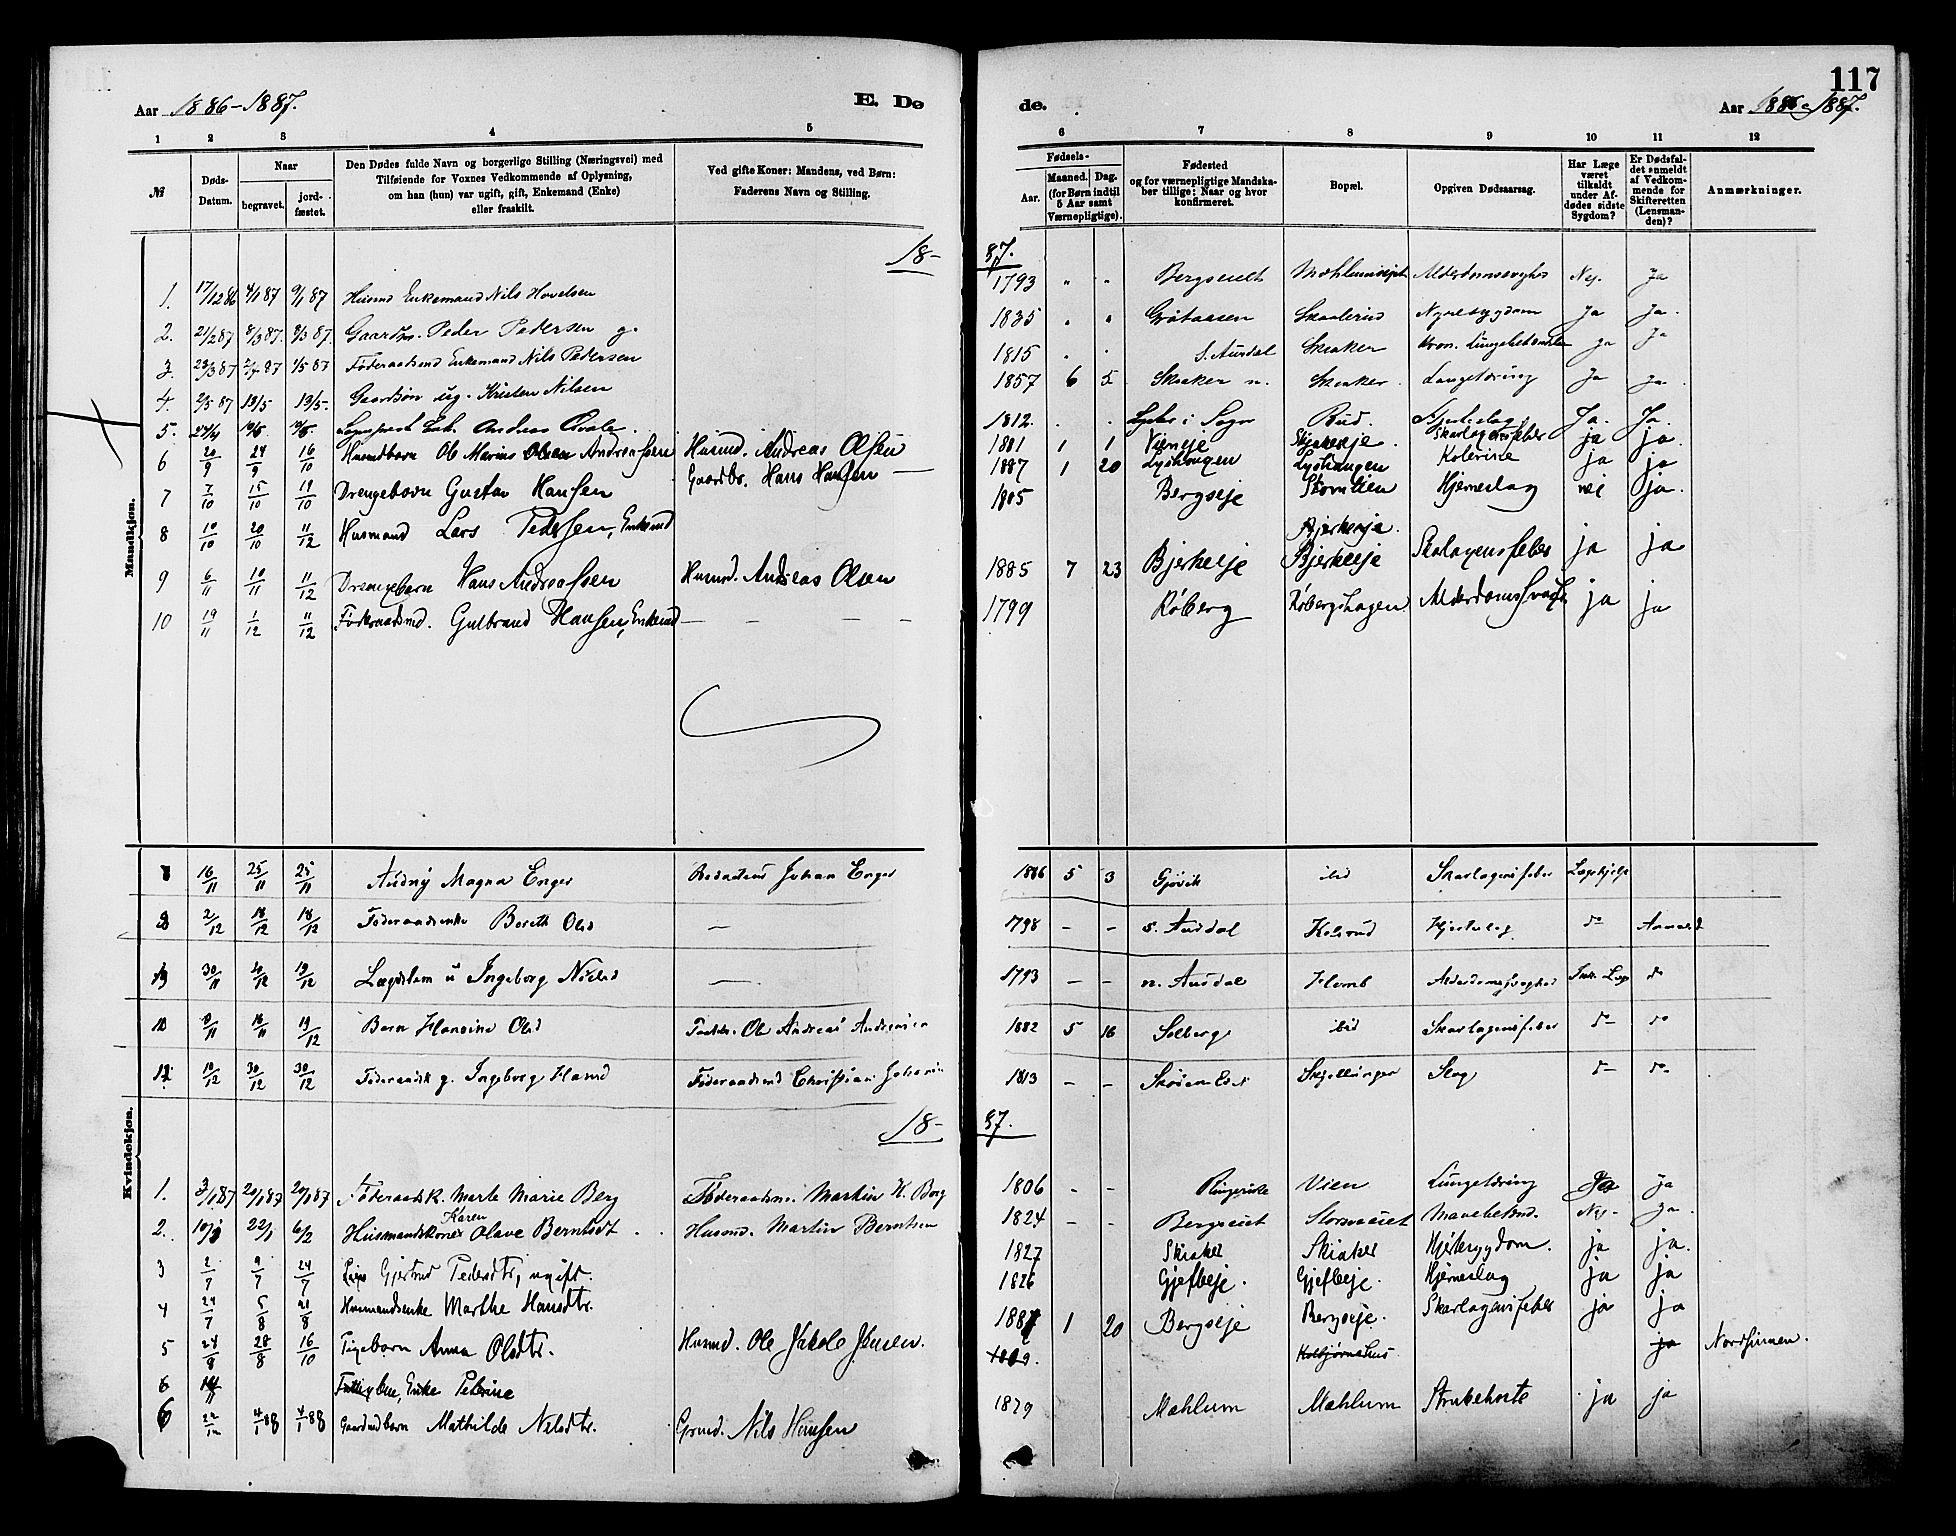 Aar 1886-1887.
E. De
de.
Aar 1886-1887.
117
1 2 3 4 5 6 7 8 9 10 11 12
№
Døds-Datum.
Naar
begravet.
jord-fæstet.
Den Dødes fulde Navn og borgerlige Stilling (Næringsvei) med
Tilføiende for Voxnes Vedkommende af Oplysning,
om han (hun) var ugift, gift, Enkemand (Enke)
eller fraskilt.
Ved gifte Koner: Mandens, ved Børn:
Faderens Navn og Stilling.
Fødsels-
Aar.
Maaned. Dag.
(for Børn indtil
5 Aar samt
Værnepligtige).
Fødested
og for værnepligtige Mandska-
ber tillige: Naar og hvor
konfirmeret.
Bopæl.
Opgiven Dødsaarsag.
Har Læge
været
tilkaldt
under Af-
dødes sidste
Sygdom?
Er Dødsfal-
det anmeldt
af Vedkom-
mende for
Skifteretten
(Lensman-
den)?
Anmærkninger.
Mandkjøn.
18-87.
1. 17/12 86 4/1 87 9/1 87 Husmd Enkemand Nils Hovelsen 1793 " " Bergseiet Alderdomssvaghed Nej. Ja
2. 21/2 87 8/3 87. 8/3 87. Gaardbr. Peder Pedersen g. 1835 " " Gråtaasen Skaalerud Nyresygdom Ja Ja.
3. 23/3 87 87 1/5 87 Føderaadsmd Enkemand Nils Pedersen 1815 . . S. Aurdal Skiaker Kron. Lungebetændelse Ja Ja
4. 2/5 87 13/5 13/5. Gaardbrn ug. Kristen Nilsen 1857 6 5 Skiaker n. Skiaker. Lungetæring Ja Ja
5. Enk. Andreas Qvale. 1812. . . i Sogn Rud. Hjerteslag Ja. Ja.
6 20/9 24/9 16/10 Husmdbarn Ole Marius Olsen Andreassen Husmd. Andreas Olsen 1881 1 1 Skjakereje. Skarlagensfeber ja ja.
7 7/10 15/10 19/10 Drengebarn Gustav Hansen Gaardbr. Hans Hansen — 1887 1 20 Lyshaugen Lyshaugen Kolerine ja ja
8 10/10 20/10 11/12 Husmand Lars Pedersen, Enkemd 1805 Bergseje Stormlien Hjerneslag nei ja.
Bjerkeeje.
9 6/11 10/11 11/12 Drengebarn Hans Andreassen Husmd. Andreas Olsen 1885 7 23 Bjerkeeje Bjerkeeje Skalagensfeber ja ja
10 19/11 1/12 11/12 Føderaadsmd. Gulbrand Hansen, Enkemd — — — — 1799 Røberg Røbergshagen. Alderdomssvagh ja ja
Kvindekjøn.
16/11 25/11 25/11 Audny Magna Enger Johan Enger 1886 5 3 Gjøvik ibid Skarlagensfeber Lægehjelp
2/12 18/12 18/12 Føderaadsenke Boreth Olsd — 1798 — — S. Aurdal Kolsrud Hjerteslag do Anmeldt
30/11 10/12 19/12 Lægdslem u Ingeborg Nielsd — 1793 — — n. Aurdal Alderdomssvaghed do
10 19/12 Barn Hansine Olsd Ole Andreas Andersen 1882 5 16 Solberg ibid Skarlagensfeber do do
10/12 30/12 30/12 Føderaadsk g. Ingeborg Hansd Føderaadsmd Christian Johansen 1813 — — Skjellinger Slag do do
18-87.
1. 3/1 87 20/1 87 20/1 87 Føderaadsk. Marte Marie Berg Føderaadsm. Martin H. Berg 1806 - - Ringerike Vien Lungetæring Ja ja
Karen
2. 22/1 6/2 Husmandskone Olave Berntsdt. Husmd. Martin Berntsen 1824 - - Bergseiet Mavebetænd. Nej. Ja.
3 2/7 9/7 24/7 Gjertrud Pedersdtr, ugift. 1827 Skiaker Skiaker Hjertesygdom. ja ja.
4 24/7 5/8 21/8 Husmandsenke Marthe Hansdtr. 1826 Gjefleeje. Gjefleeje. Hjerneslag ja ja
5 24/8 28/8 16/10 Pigebarn Anna Olsdtr. Husmd. Ole Jakob Jensen. 1887 1 20 Bergseje Bergseje. Skarlagensfeber ja ja
6 Enke Petrine ja Nordsinnen.
6 4/1 88 4/1 88 Gaardmdbarn Mathilde Nilsdtr. Grmd. Nils Hansen 1879 Mæhlum Mæhlum Strubehoste ja ja